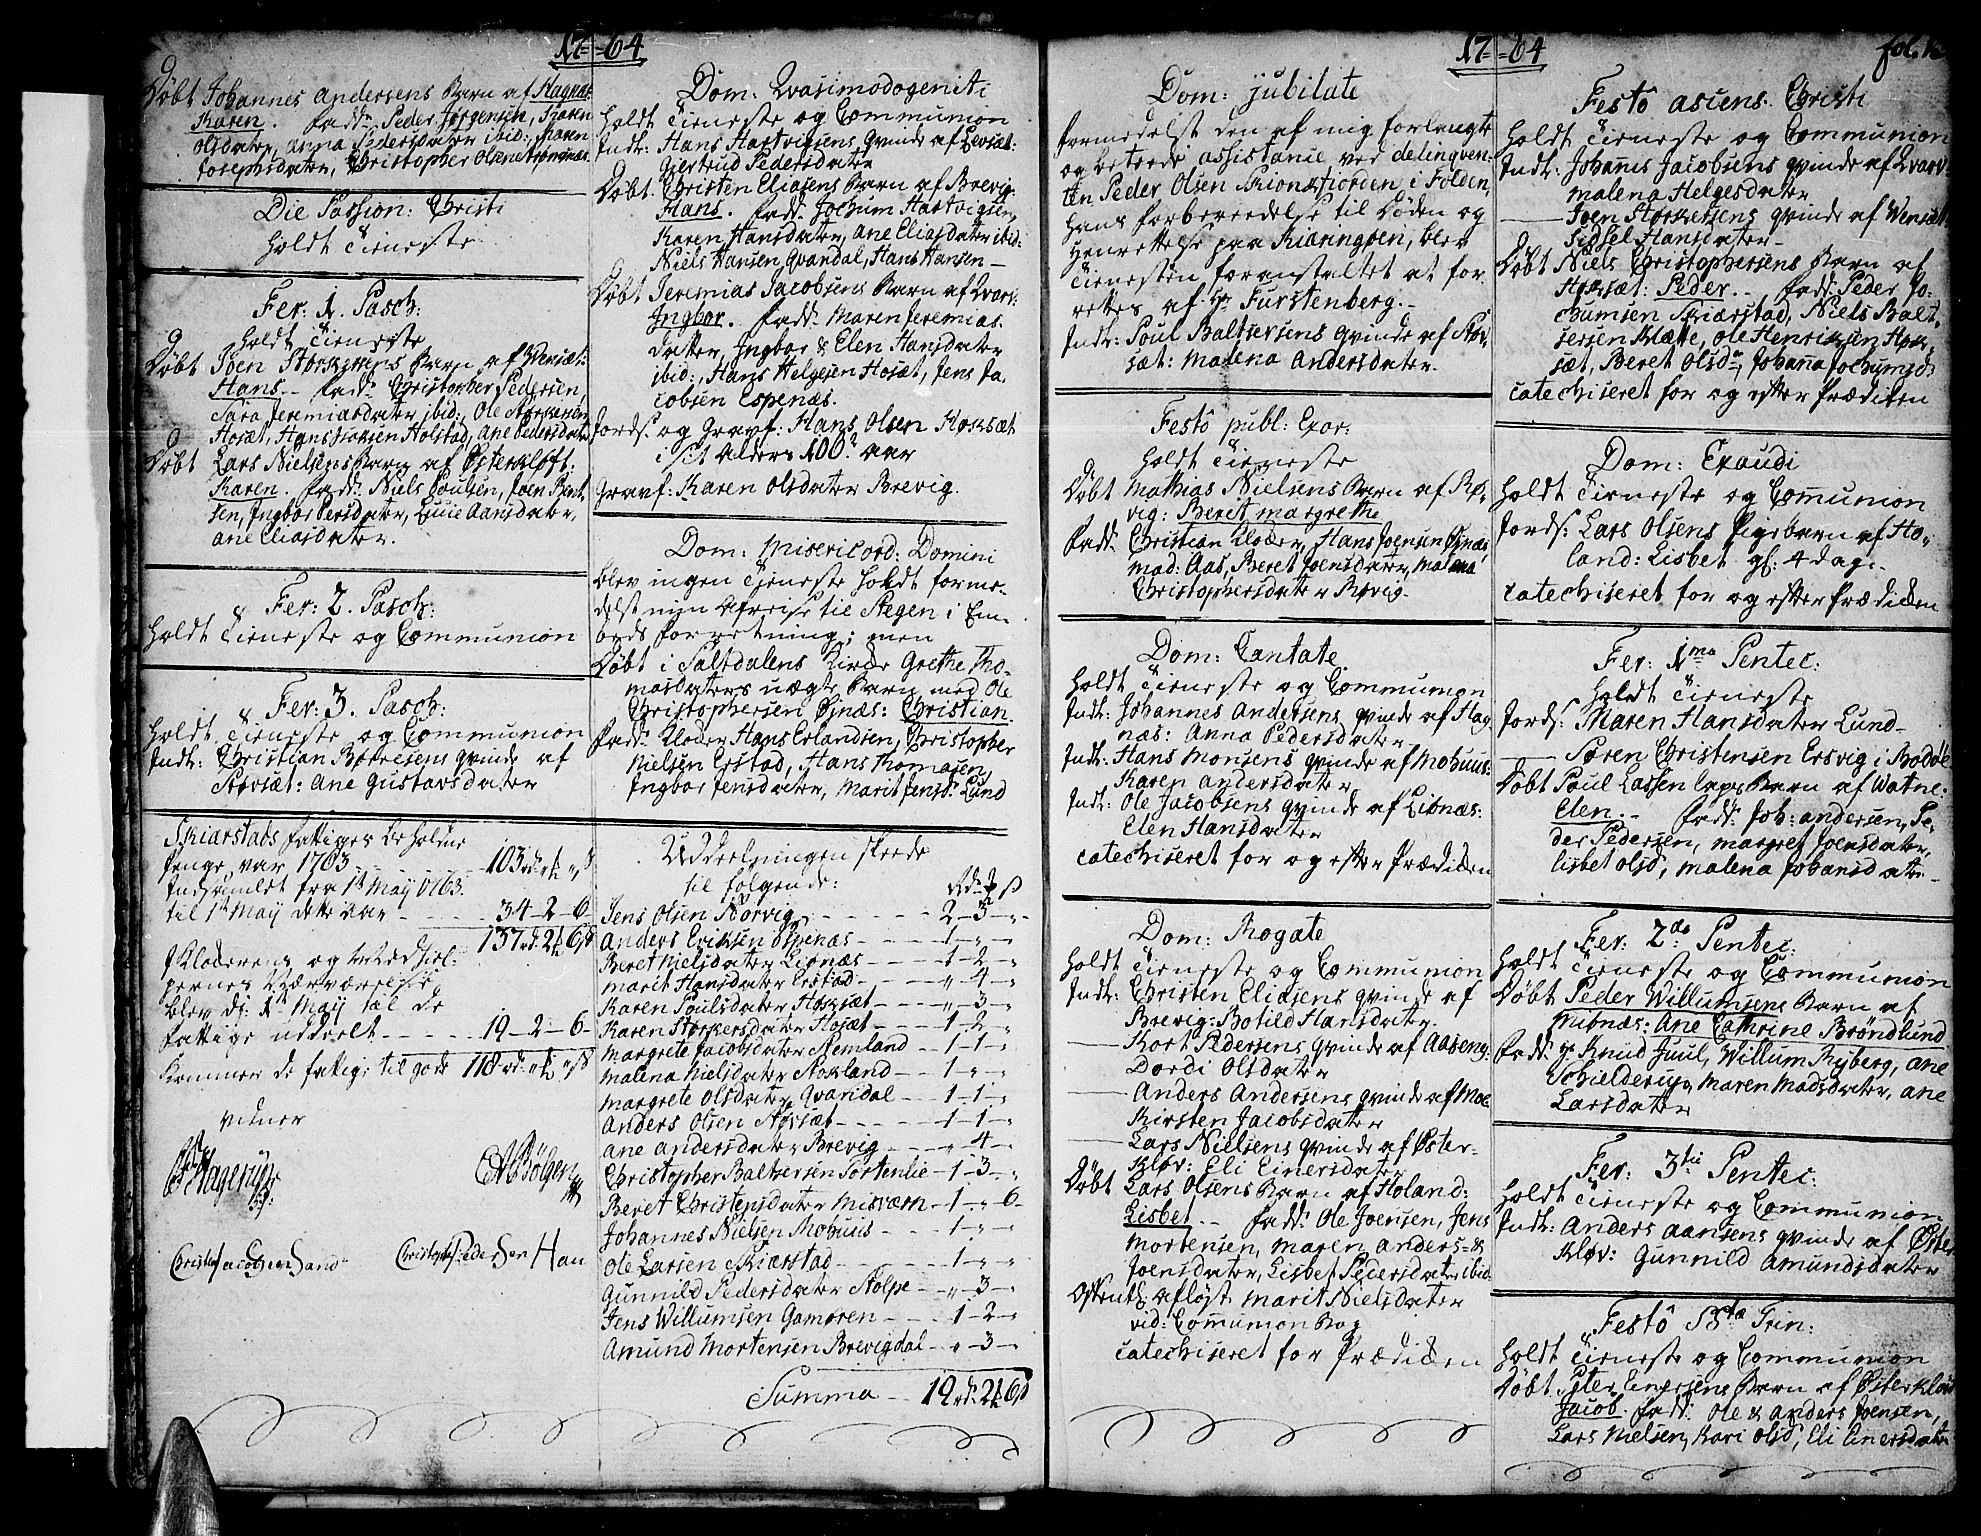 17=64
Døbt Johannes Andersens Barn af Hagnæs:
Karen. Fadd: Peder Jørgensen, Karen
Olsdatter, Anna Pedersdatter ibid: Maren
Josephsdatter, Christopher Olsen
Die Passion: Christi
holdt Tieneste
Fer: 1. Pasch:
holdt Tieneste
Døbt Joen Storkersens Barn af Wensæt:
Hans. Fadd: Christopher Pedersen,
Sara Jeremiasdatter ibid:, Ole Storkersen
Hosæt, Hans Isaksen Holstad, Ane Pedersdatter
Døbt Lars Nielsens Barn af Østerkløft:
Karen. Fadd: Niels Poulsen, Joen Bent,
sen, Ingbor Persdatter, Lucie Aansdatter,
Ane Eliasdatter.
Fer: 2. Pasch:
holdt Tieneste og Communion
Fer: 3. Pasch:
holdt Tieneste og Communion
Indt: Christian Børresens Qvinde af
Støvsæt: Ane Gustavsdatter
Skiarstads Fattiges beholdne
Penge, var 1763 - - - 103 rdr - -
Indsamlet fra 1st May 1763.
til 1st May dette Aar - - - 34-2-6
137 rd 2 6
Kloderens og Medhiel-
pernes Nærværelse
blev d: 1st May til de
Fattige uddeelt - - - 19-2-6
Kommer de fattige til gode 118 rdr - -
vidner
P Hagerup
ABølgen
Christof Jacobsen Sand
Christoph: Pedersen Hau
Dom: Qvasimodogeniti
holdt Tieneste og Communion
Indt: Hans Hartvigsens Qvinde af Levset:
Giertrud Pedersdatter
Døbt Christen Eliasens Barn af Brevig:
Hans. Fadd: Jochum Hartvigsen,
Karen Hansdatter, Ane Eliasdatter ibid:
Niels Hansen Qvandal, Hans Hansen
Døbt Jeremias Jacobsens Barn af Qvari:
Ingbor. Fadd: Maren Jeremias-
datter, Ingbor & Elen Hansdatter
ibid:, Hans Helgesen Hosæt, Jens Ja-
cobsen Espenæs.
Jords: og Gravf: Hans Olsen Hoksæt
i sit Alders 100? Aar
Gravf: Karen Olsdatter Brevig.
Dom: Misericord: Domini
blev ingen Tieneste holdt forme-
delst min Afreise til Stegen i Em-
beds forretning; men
Døbt i Saltdalens Kirke Grethe Tho-
masdatters uægte Barn med Ole
Christophersen Øjnæs: Christian.
Fadd: Kloder Hans Erlandsen, Christopher
Nielsen Erstad, Hans Thomasen,
Ingbor Jensdatter, Marit Jensd: Lund
Uddeelningen skeede
til følgende: Rdr
Jens Olsen Børvig - - - 2-3-
Anders Eriksen Espenæs - - - 1- -
Beret Nielsdatter Lionæs - - - 1-2-
Marit Hansdatter Erstad - - - 4-
Karen Poulsdatter Hoksæt - - - 3-
Karen Storkersdatter Hosæt - - - 1-2-
Margrete Jacobsdatter Stemland - - 1-1-
Malena Nielsdatter Stokland - - 1- -
Margrete Olsdatter Qvandal - - 1-1-
Anders Olsen Støvsæt - - - 1-1-
Ane Andersdatter Brevig - - - 4-
Christopher Baltsersen Tortenlie - 1-3-
Beret Christensdatter Misværn - 1- -6
Johannes Nielsen Mohuus - - 1- -
Ole Larsen Skiærstad - - - 1- -
Gunnild Pedersdatter Stolpe - - 3-
Jens Willumsen Gamøren - - - 1-2-
Amund Mortensen Brevigdal - - 3-
Summa - - 19 rd 2 6
17=64
Dom: Jubilate
Formedelst den af mig forlangte
og betrede Assistance ved delinqven-
ten Peder Olsen Skionsfjorden i Folden,
hans forberedelse til Døden og
Henrettelse paa Kiæringøen, blev
Tienesten foranstaltet at for-
rettes af Hr Furstenberg.
Indt: Poul Baltsersens Qvinde af Støv-
sæt: Malena Andersdatter.
Festô publ: Exor:
holdt Tieneste
Døbt Mathias Nielsens Barn af Rø-
vig: Beret Margrethe
Fadd: Christian Kloder, Hans Joensen Øjnæs
Mad: Aas, Beret Joensdatter, Malena
Christophersdatter Røvig.
Dom: Cantate.
holdt Tieneste og Communion
Indt: Johannes Andersens Qvinde af Hag-
næs: Anna Pedersdatter
Indt: Hans Monsens Qvinde af Mohuus:
Karen Andersdatter
Indt: Ole Jacobsens Qvinde af Lionæs:
Elen Hansdatter
Catechiseret for og efter Prædiken
Dom: Rogate
holdt Tieneste og Communion
Indt: Christen Eliasens Qvinde af
Brevig: Botild Hansdatter
— Kort Pedersens Qvinde af Aaseng:
Dordi Olsdatter
— Anders Andersens Qvinde af Moe
Kirsten Jacobsdatter
— Lars Nielsens Qvinde af Øster-
kløv: Eli Einersdatter
Døbt Lars Olsens Barn af Holand:
Lisbet. Fadd: Ole Joensen, Jens
Mortensen, Maren Anders= &
Joensdatter, Lisbet Pedersdatter ibid
Offentl: afløst Marit Nielsdatter
vid: Comunion Bog
Catechiseret for Prædiken
fol.
Festô ascens. Christi
holdt Tieneste og Communion
Indt: Johans Jacobsens Qvinde af Qvarv:
Malena Helgesdatter
— Joen Storkersens Qvinde af Wensæt
Sidsel Hansdatter
Døbt Niels Christophersens Barn af
Hoksæt: Peder. Fadd: Peder Jo-
chumsen Skiærstad, Niels Balt-
sersen Klætte, Ole Henriksen Hok-
sæt, Beret Olsdr, Johana Jochumsd:
Catechiseret for og efter Prædiken
Dom: Exaudi
holdt Tieneste og Communion
Jords: Lars Olsens Pigebarn af Ho-
land: Lisbet gl: 4 dage.
Catechiseret for og efter Prædiken
Fer: 1ma Pentec:
holdt Tieneste
Jords: Maren Hansdatter Lund
— Søren Christensen Ersvig i Bodøe
Døbt Poul Larsen Lapps Barn af Watne:
Elen. Fadd: Joh: Andersen, Pe-
der Pedersen, Margret Joensdatter,
Lisbet Olsd:, Malena Johansdatter
Fer: 2da Pentec:
holdt Tieneste og Communion
Døbt Peder Willumsens Barn af
Mibnæs: Ane Cathrine Brøndlund
Fadd: Hr Knud Juul, Willum Ryberg, Ane
Schielderup, Maren Madsdatter, Ane
Larsdatter
Fer: 3tii Pentec:
holdt Tieneste og Communion
Indt: Anders Aansens Qvinde af Øster
Kløv: Gunnild Amundsdatter
Festô SSta Trin:
holdt Tieneste og Communion
Døbt Peter Einersens Barn af Østerkløv
Jacob. Fadd: Ole & Anders Joensen,
Lars Nielsen, Kari Olsd, Eli Einersdatter